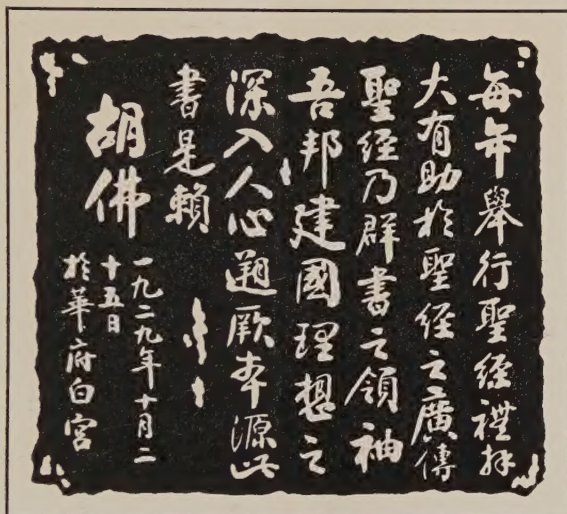 每年舉行聖經禮拜
大有助於聖經之廣傳
聖經乃群書之領袖
吾邦建國理想之
深入人心遡厥本源此
書是賴
胡佛
一九二九年十月二
十五日
於華府白宮